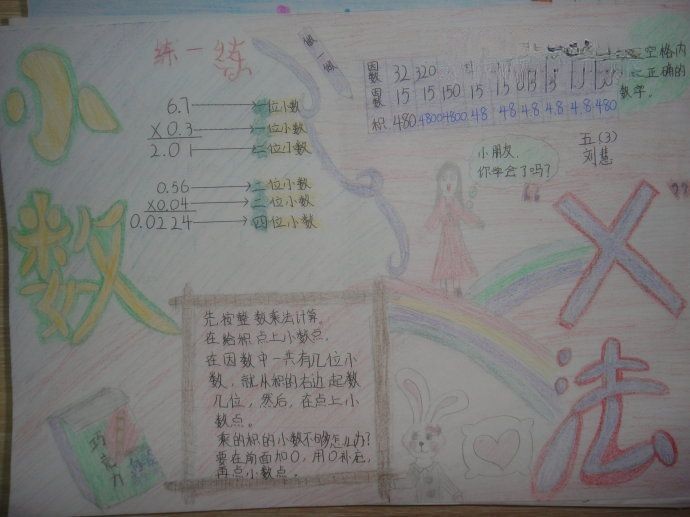 小数
×法
练一练
6.7→一位小数
×0.3→一位小数
2.01→二位小数
0.56→二位小数
×0.04→二位小数
0.0224→四位小数
做一做
空格内
正确的
数字。
因数 32 320
因数 15 15 150 15 15
积 480 4800 4800 48 48 4.8 4.8 4.8 480
五(3)
刘慧
小朋友,
你学会了吗?
先按整数乘法计算,
在给积点上小数点。
在因数中一共有几位小
数,就从积的右边起数
几位,然后,在点上小
数点。
乘的积的小数不够怎么办?
要在前面加0,用0补起,
再点小数点。
巧克力